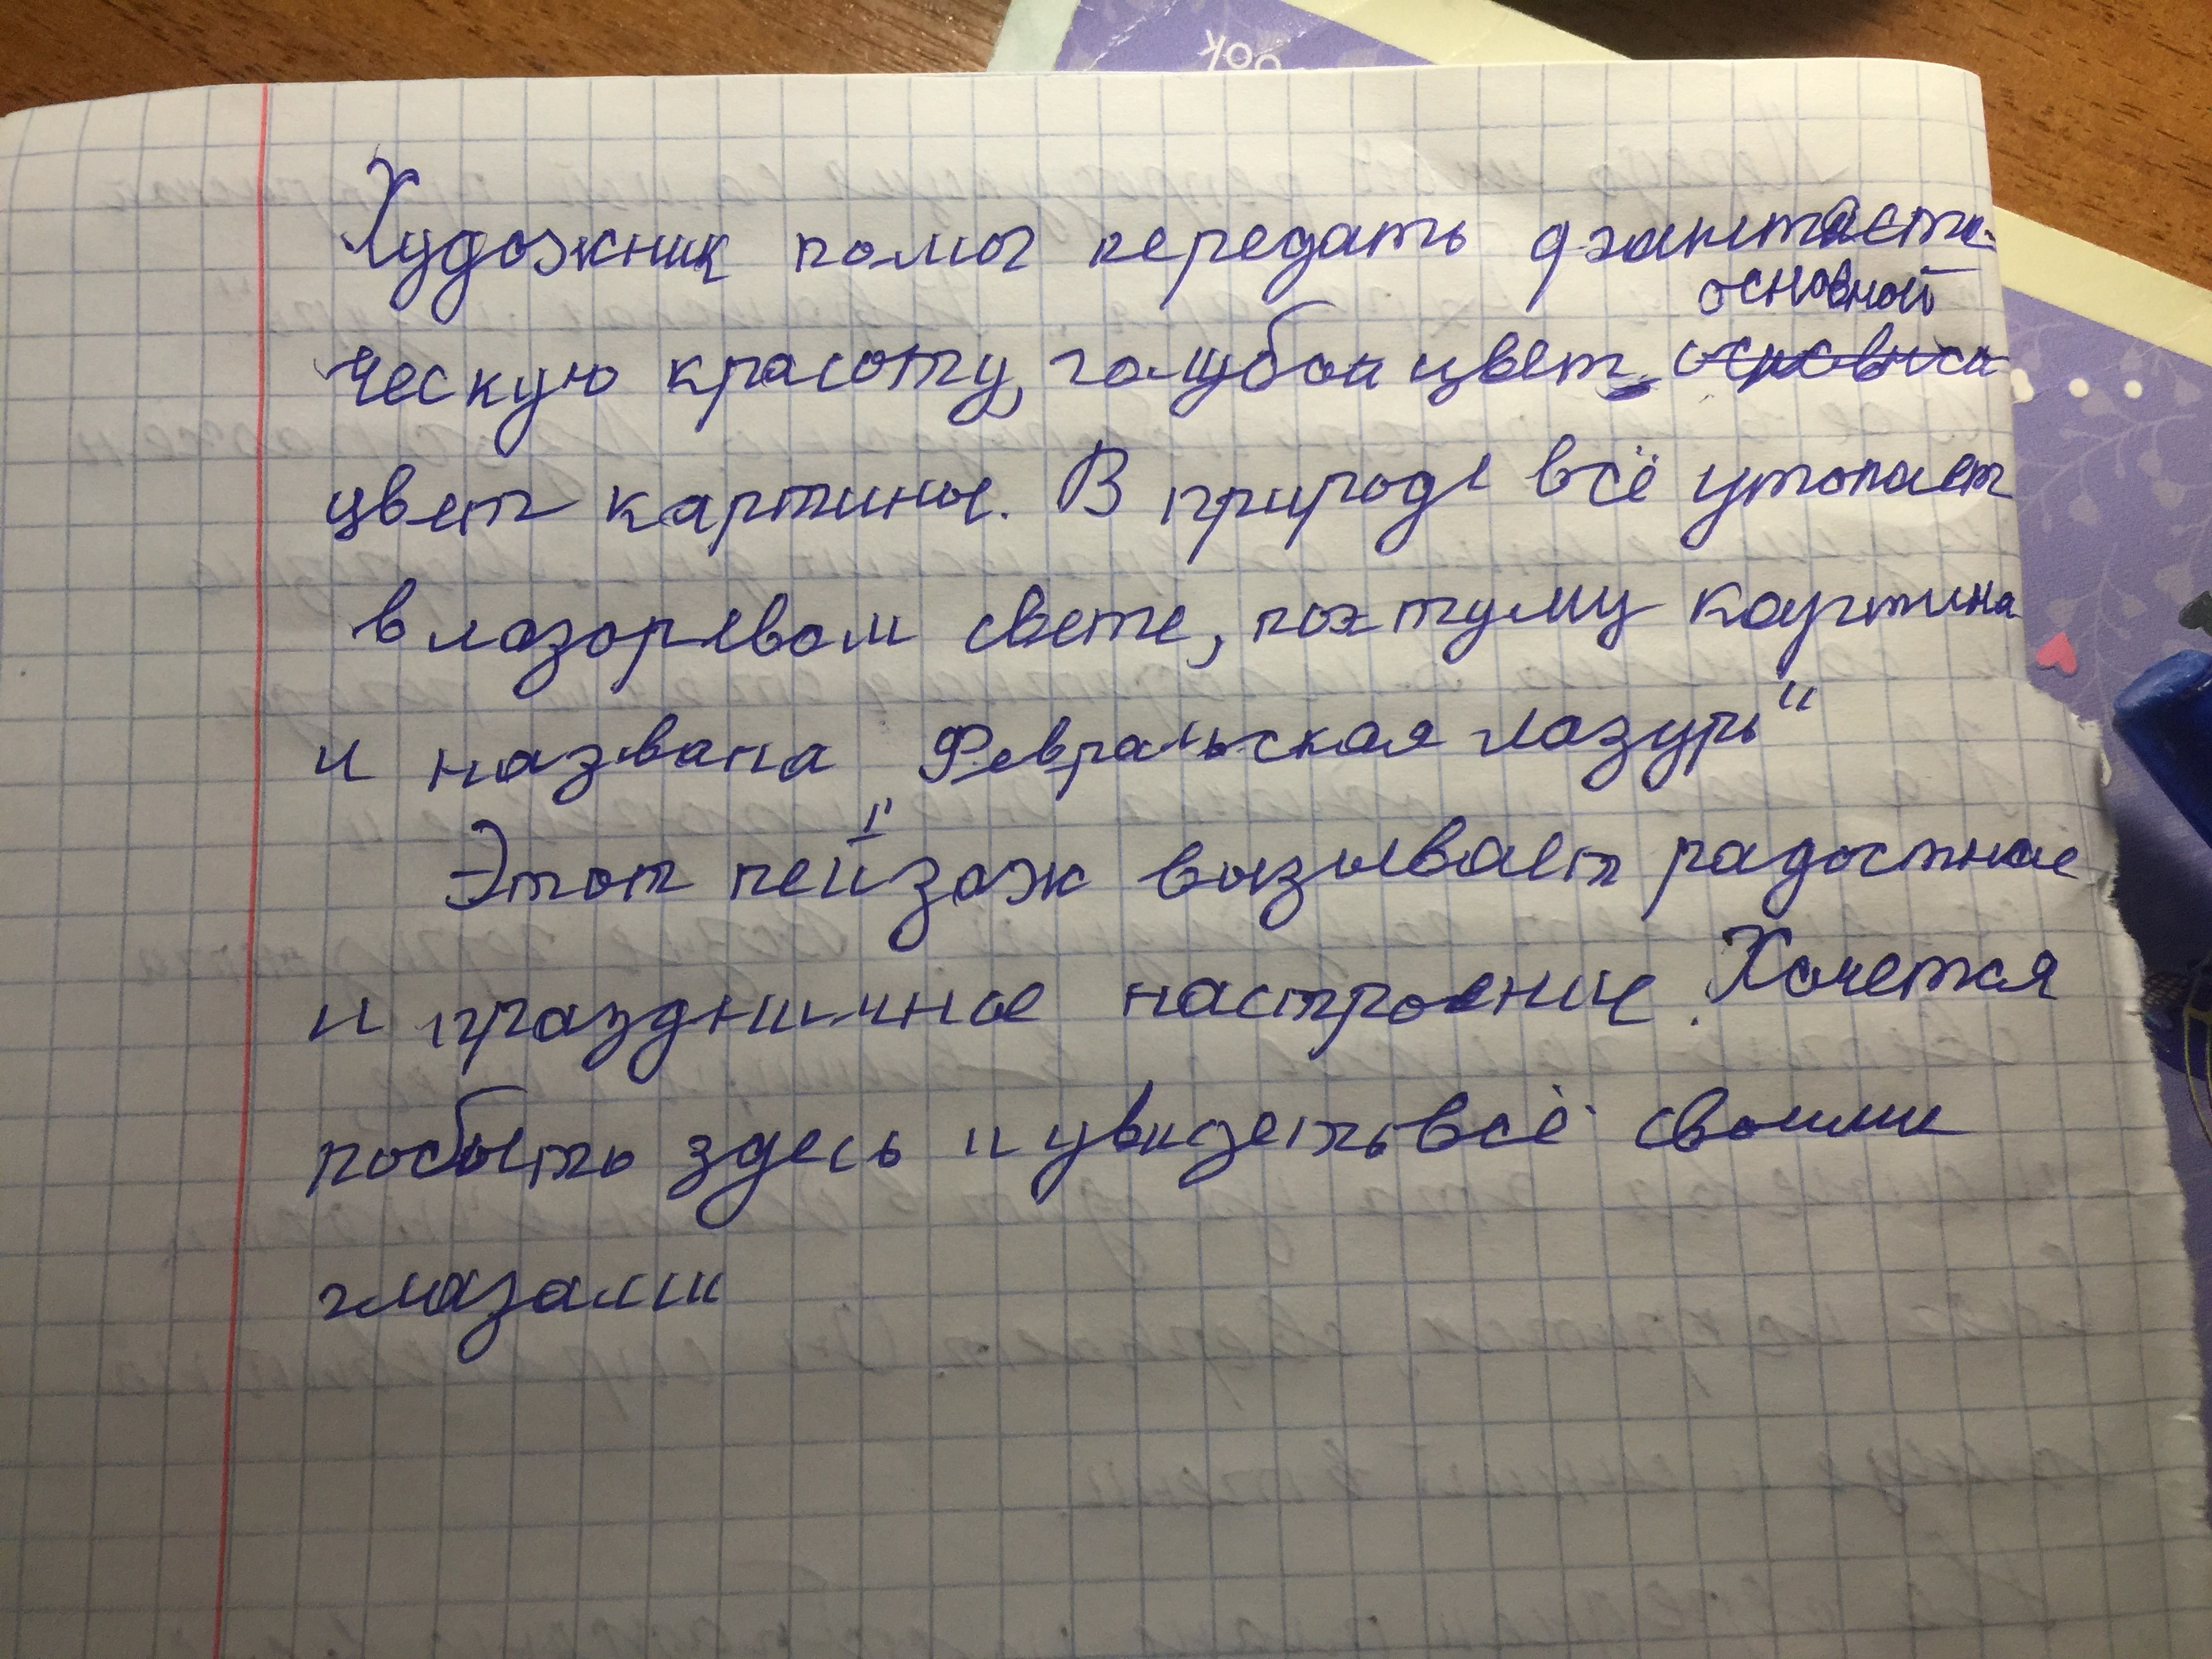 Художник помог передать фантасти-
ческую красоту, голубой цвет основной
цвет картины. В природе всё утопает
в лазоревом свете, поэтому картина
и названа "Февральская лазурь"
Этот пейзаж вызывает радостное
и праздничное настроение. Хочется
побыть здесь и увидеть всё своими
глазами